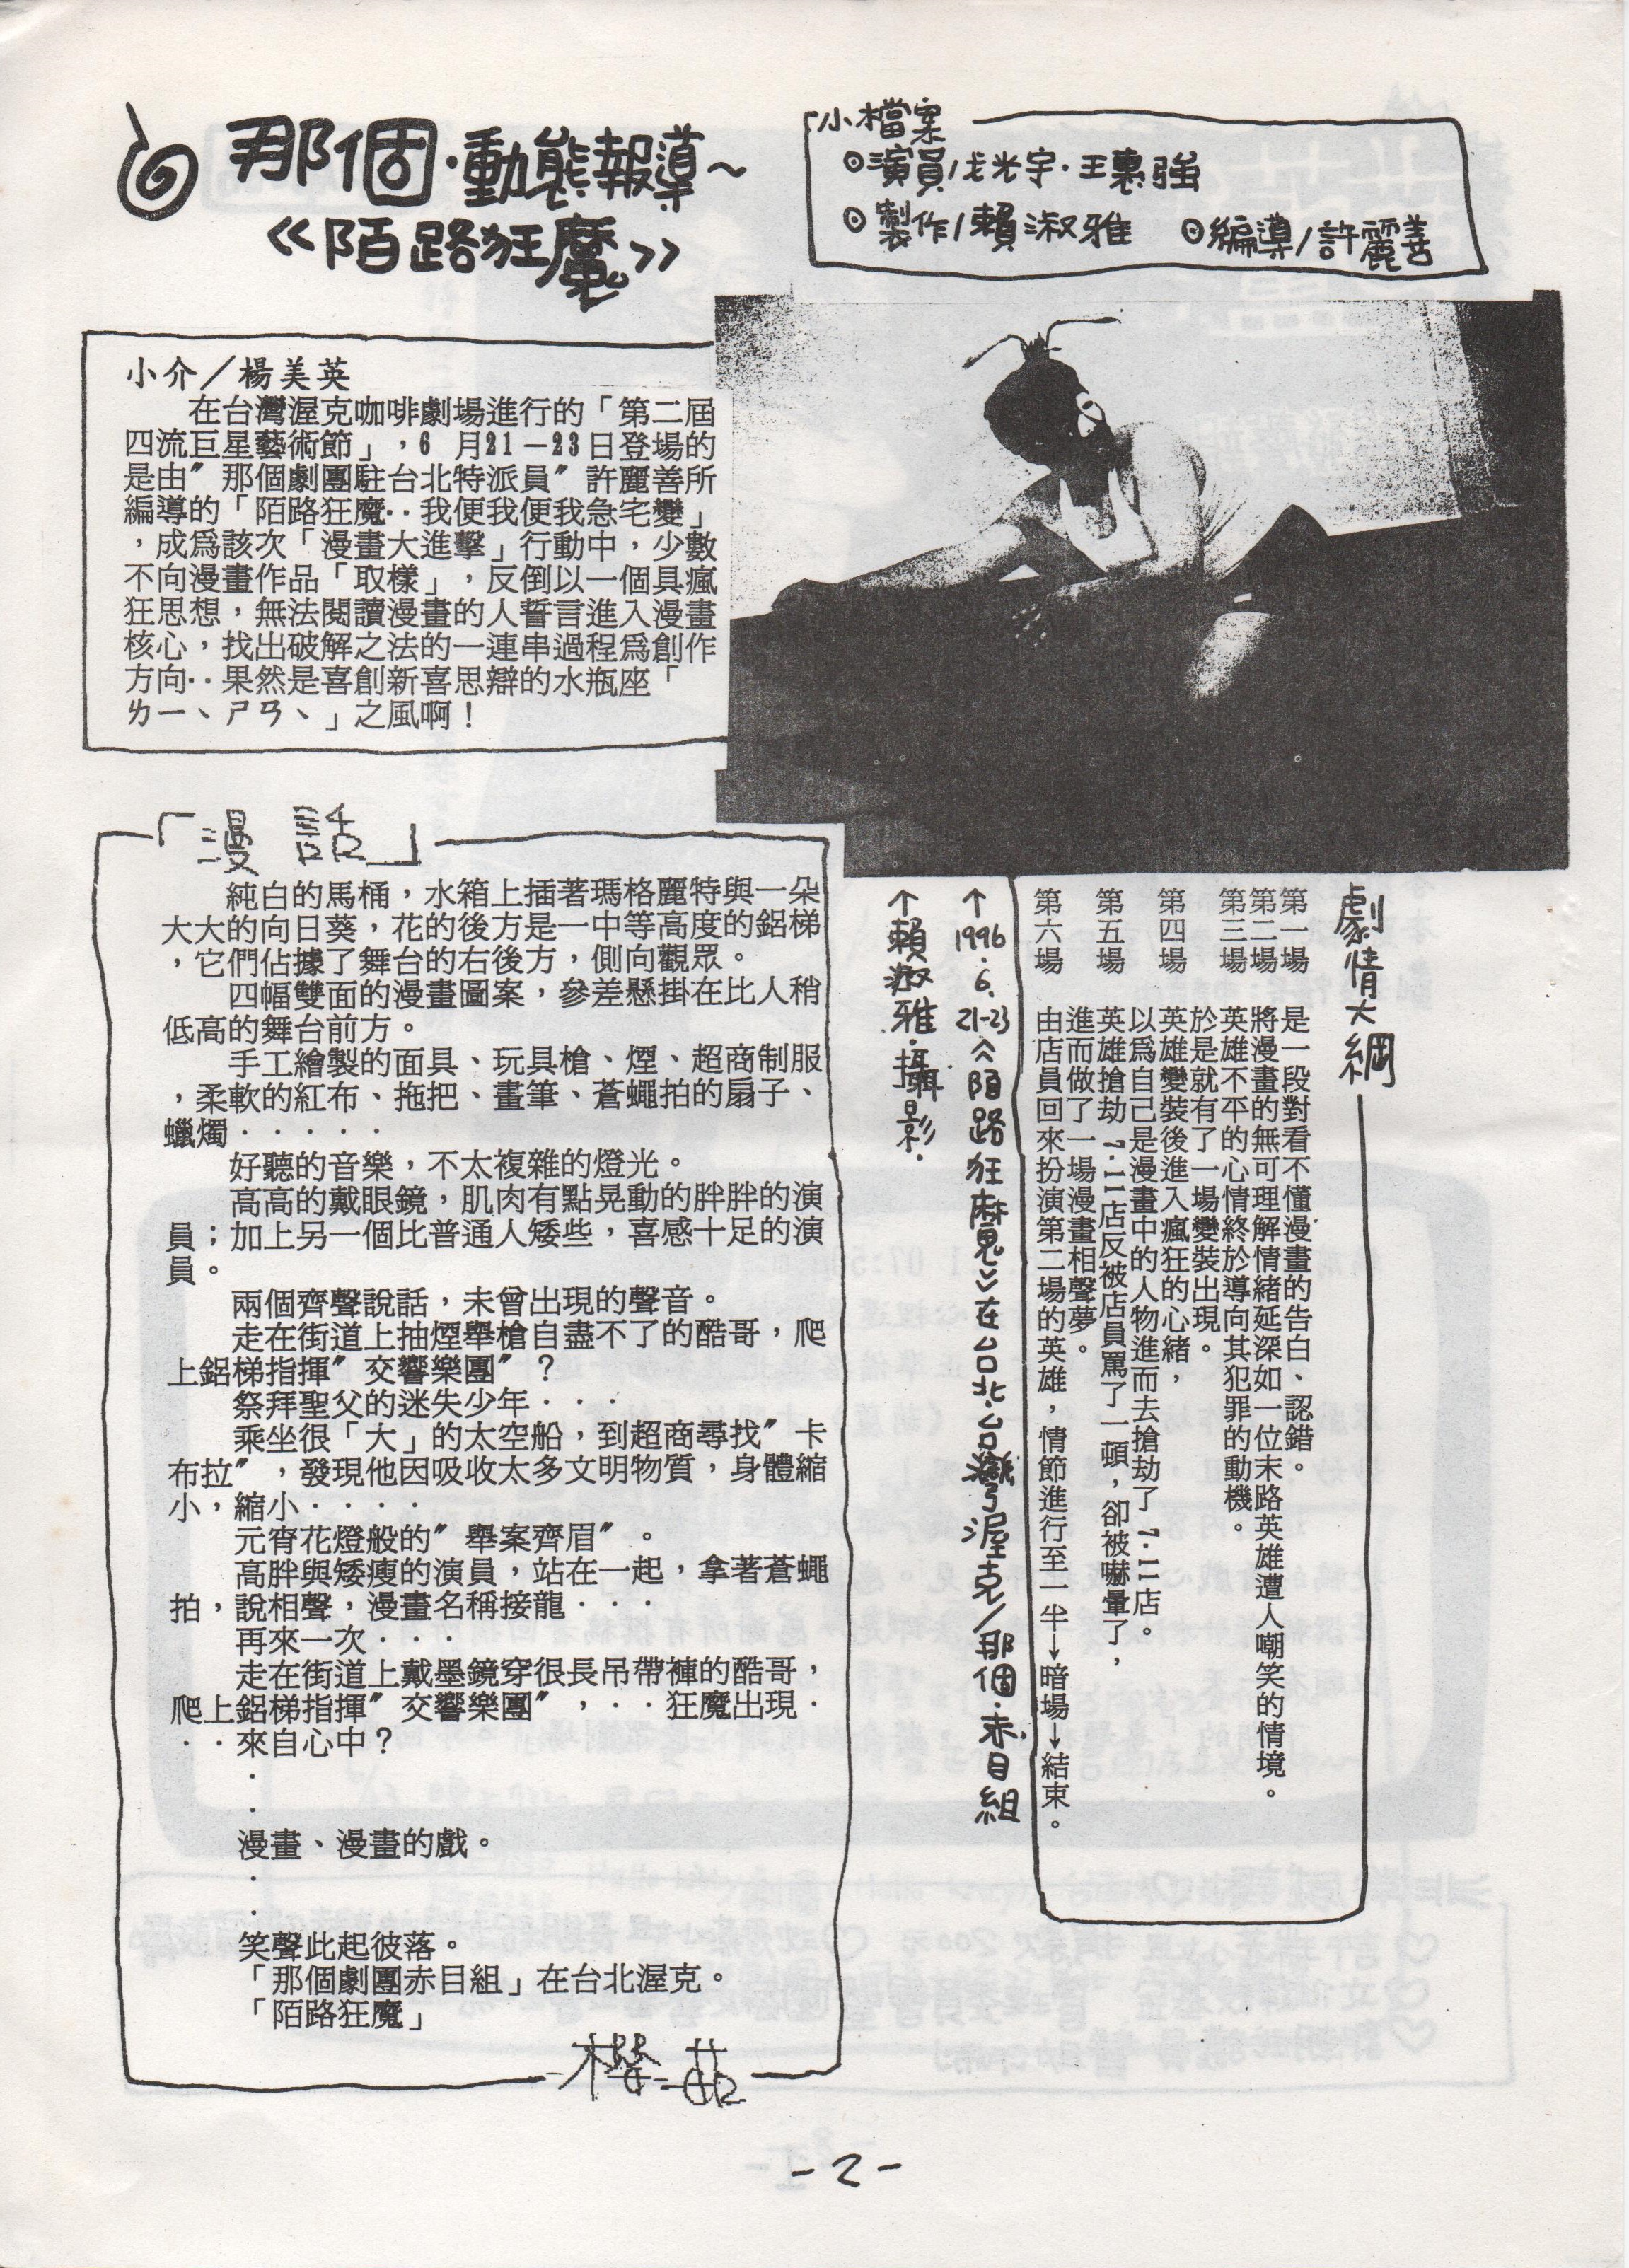 那個·動態報導~
《陌路狂魔》
小檔案
⊙演員/戈光宇·王裹強
⊙製作/賴淑雅 ⊙編導/許麗善
小介／楊美英
在台灣渥克咖啡劇場進行的「第二屆
四流巨星藝術節」，6 月21－23日登場的
是由〞那個劇團駐台北特派員〞許麗善所
編導的「陌路狂魔‥我便我便我急宅變」
，成爲該次「漫畫大進擊」行動中，少數
不向漫畫作品「取樣」，反倒以一個具瘋
狂思想，無法閱讀漫畫的人誓言進入漫畫
核心，找出破解之法的一連串過程爲創作
方向‥果然是喜創新喜思辯的水瓶座「
ㄌㄧ、ㄕㄢ、」之風啊！
「漫 話」
純白的馬桶，水箱上插著瑪格麗特與一朵
大大的向日葵，花的後方是一中等高度的鋁梯
，它們佔據了舞台的右後方，側向觀眾。
四幅雙面的漫畫圖案，參差懸掛在比人稍
低高的舞台前方。
手工繪製的面具、玩具槍、煙、超商制服
，柔軟的紅布、拖把、畫筆、蒼蠅拍的扇子、
蠟燭‧‧‧‧‧
好聽的音樂，不太複雜的燈光。
高高的戴眼鏡，肌肉有點晃動的胖胖的演
員；加上另一個比普通人矮些，喜感十足的演
員。
兩個齊聲說話，未曾出現的聲音。
走在街道上抽煙舉槍自盡不了的酷哥，爬
上鋁梯指揮〞交響樂團〞？
祭拜聖父的迷失少年‧‧‧
乘坐很「大」的太空船，到超商尋找〞卡
布拉〞，發現他因吸收太多文明物質，身體縮
小，縮小‧‧‧‧
元宵花燈般的〞舉案齊眉〞。
高胖與矮瘦的演員，站在一起，拿著蒼蠅
拍，說相聲，漫畫名稱接龍‧‧‧
再來一次‧‧‧
走在街道上戴墨鏡穿很長吊帶褲的酷哥，
爬上鋁梯指揮〞交響樂團〞，‧‧狂魔出現‧
‧‧來自心中？
‧
‧
漫畫、漫畫的戲。
‧
‧
笑聲此起彼落。
「那個劇團赤目組」在台北渥克。
「陌路狂魔」
劇情大綱
第一場 是一段對看不懂漫畫的告白、認錯。
第二場 將漫畫的無可理解情緒延深如一位末路英雄遭人嘲笑的情境。
第三場 英雄不平的心情終於導向其犯罪的動機。
於是就有了一場變裝出現。
第四場 英雄變裝後進入瘋狂的心緒，
以爲自己是漫畫中的人物進而去搶劫了7‧11店。
第五場 英雄搶劫7‧11店反被店員罵了一頓，卻被嚇暈了，
進而做了一場漫畫相聲夢。
第六場 由店員回來扮演第二場的英雄，情節進行至一半→暗場→結束。
↑1996.6.21-23《陌路狂魔》在台北·台灣渥克/那個·赤目組
↑賴淑雅·攝影.
-2-